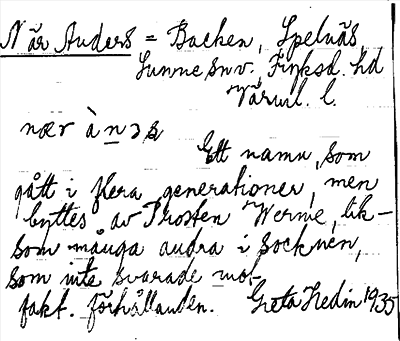 När Anders = Backen, Spelnäs,
Sunne snv. Fryksd. hd
Värml. l.
nær à n ɔ ʂ
Ett namn, som
gått i flera generationer, men
byttes av Prosten Werme, lik-
som många andra i socknen,
som inte svarade mot
fakt. förhållanden. Greta Hedin 1935